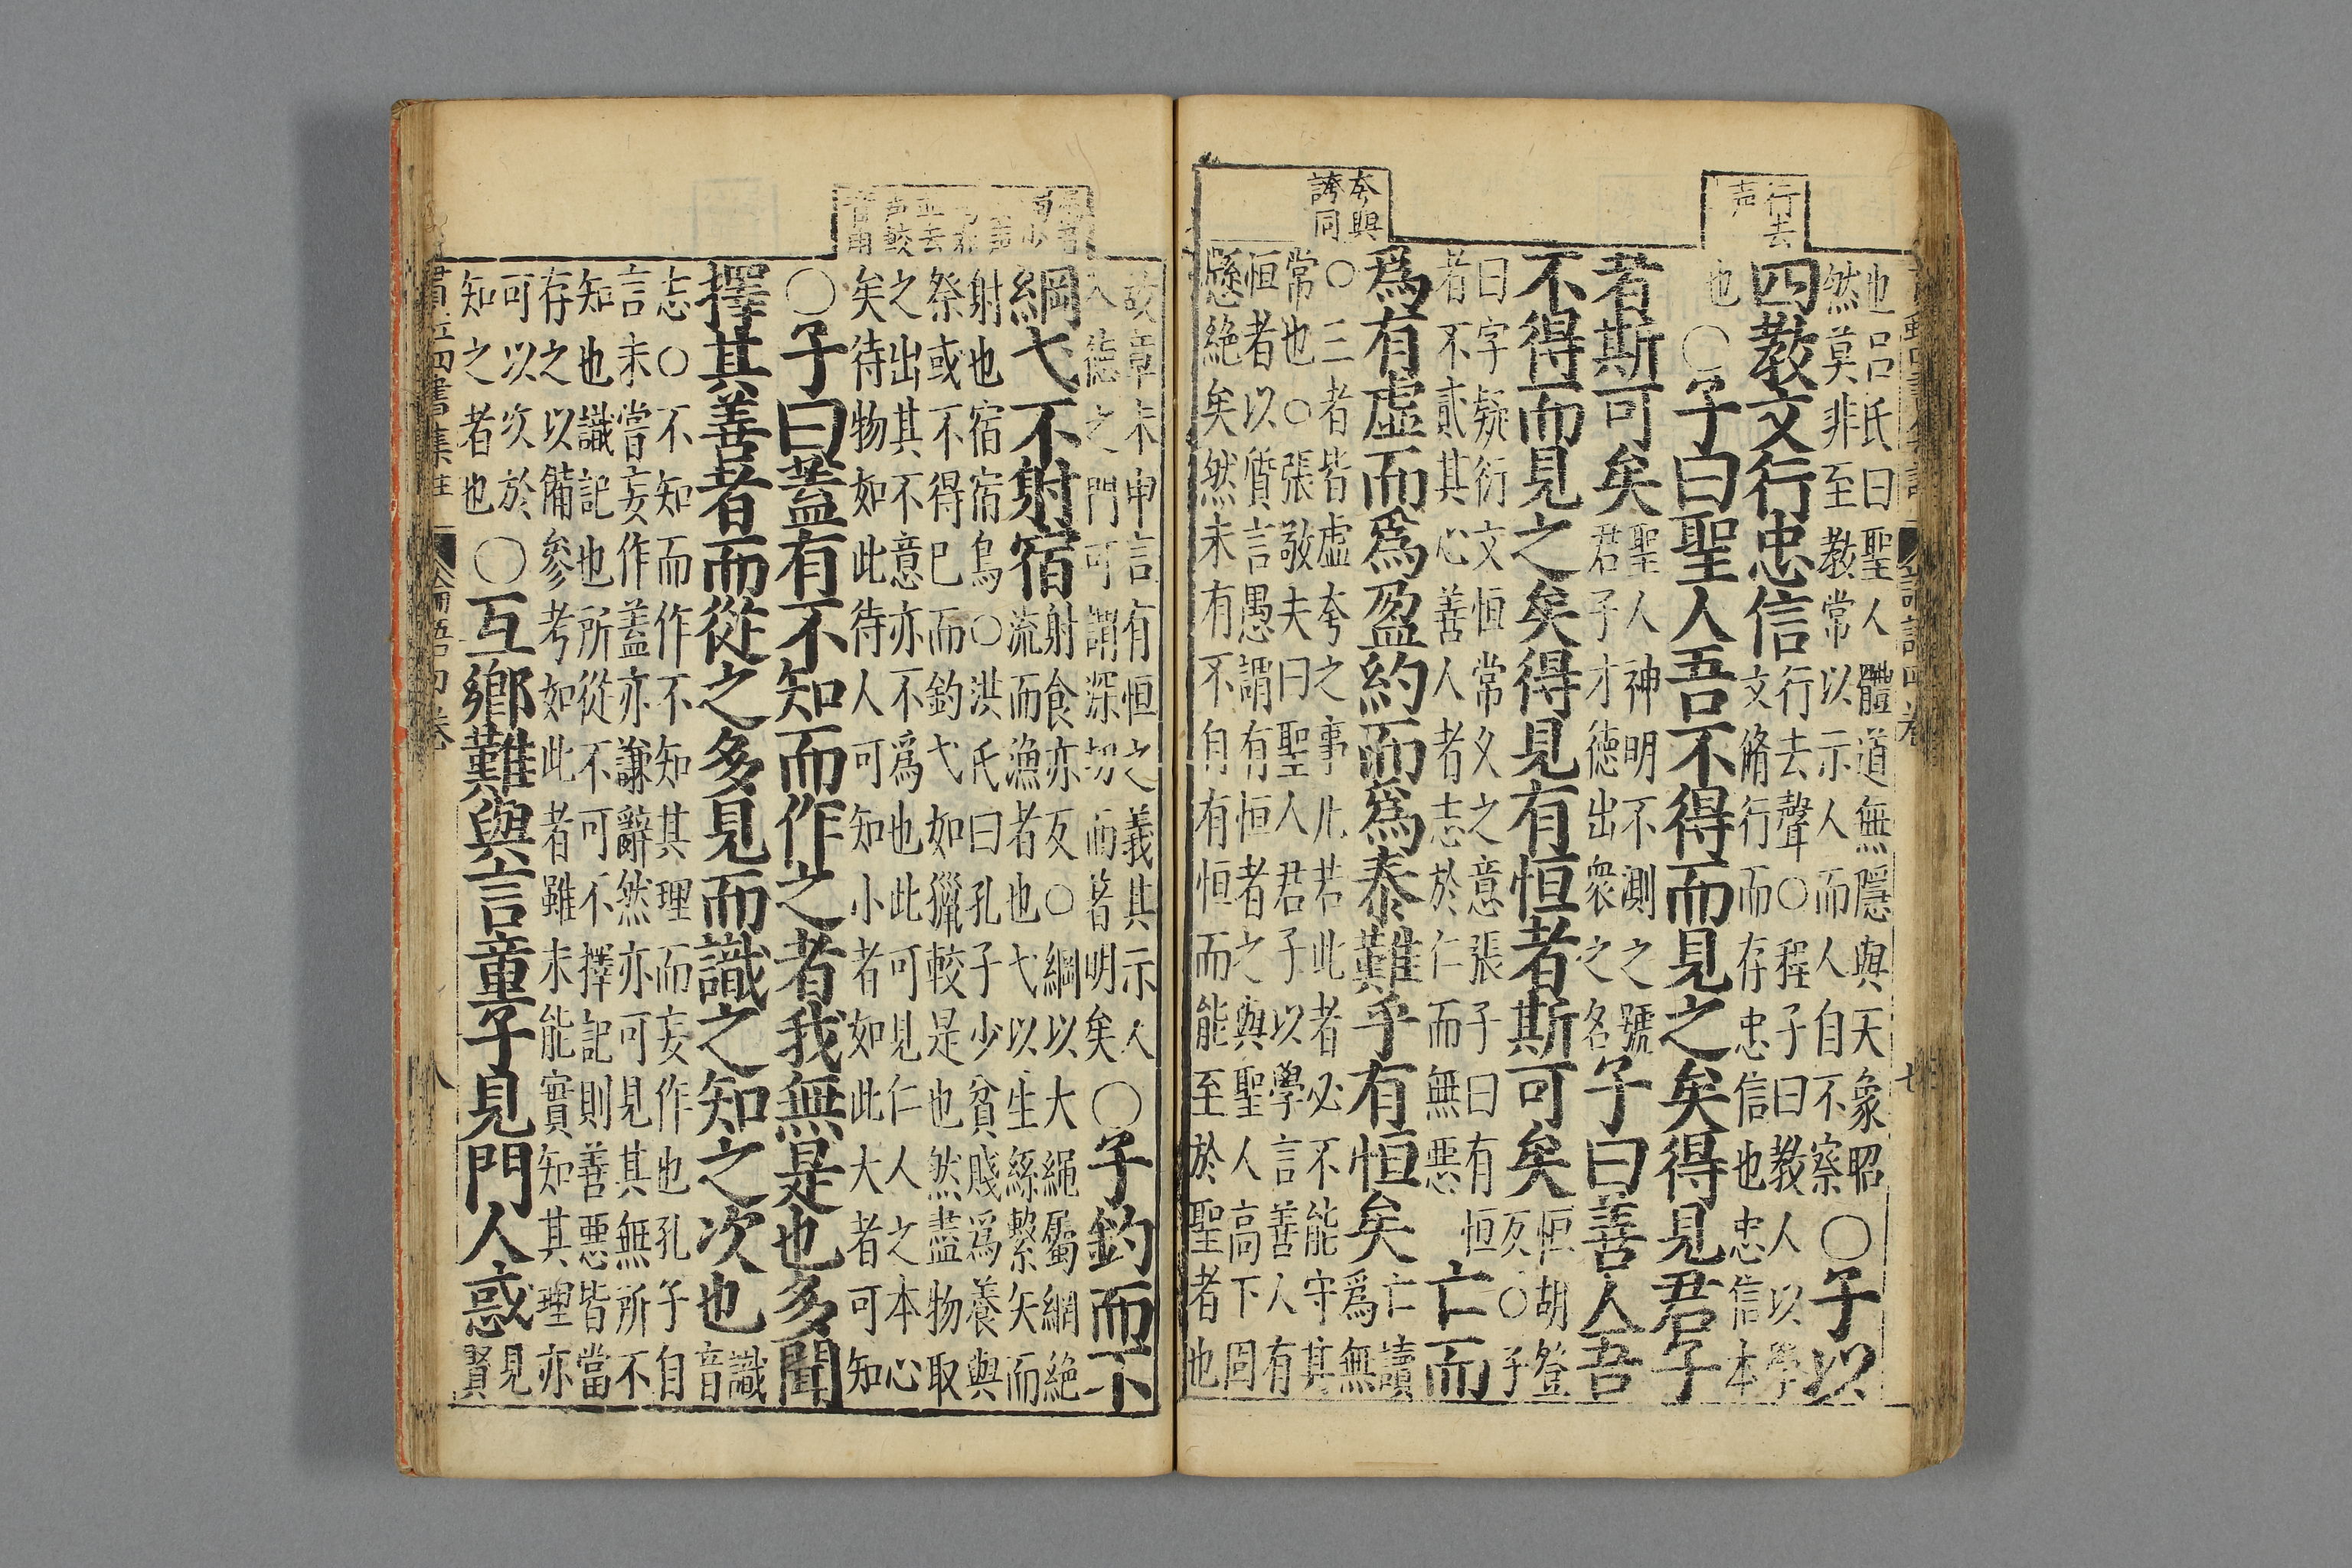 行去
声
夸與
誇同
也呂氏曰聖人體道無隱與天象昭
然莫非至教常以示人而人自不察
○子以
四教文行忠信
行去聲○程子曰教人以學
文脩行而存忠信也忠信本
也
○子曰聖人吾不得而見之矣得見君子
者斯可矣
聖人神明不測之號
君子才德出衆之名
子曰善人吾
不得而見之矣得見有恒者斯可矣
恒胡登
反○子
曰字疑衍文恒常久之意張子曰有恒
者不貳其心善人者志於仁而無惡
亡而
爲有虛而爲盈約而爲泰難乎有恒矣
亡讀
爲無
○三者皆虛夸之事凡若此者必不能守其
常也○張敬夫曰聖人君子以學言善人有
恒者以質言愚謂有恒者之與聖人高下固
懸絶矣然未有不自有恒而能至於聖者也
故章末申言有恒之義其示人
入德之門可謂深切而著明矣
○子釣而不
綱弋不射宿
射食亦反○綱以大繩屬網絶
流而漁者也弋以生絲繫矢而
射也宿宿鳥○洪氏曰孔子少貧賤爲養與
祭或不得已而釣弋如獵較是也然盡物取
之出其不意亦不爲也此可見仁人之本心
矣待物如此待人可知小者如此大者可知
○子曰蓋有不知而作之者我無是也多聞
擇其善者而從之多見而識之知之次也
識
音
志○不知而作不知其理而妄作也孔子自
言未嘗妄作蓋亦謙辭然亦可見其無所不
知也識記也所從不可不擇記則善惡皆當
存之以備參考如此者雖未能實知其理亦
可以次於
知之者也
○互鄉難與言童子見門人惑
見
賢